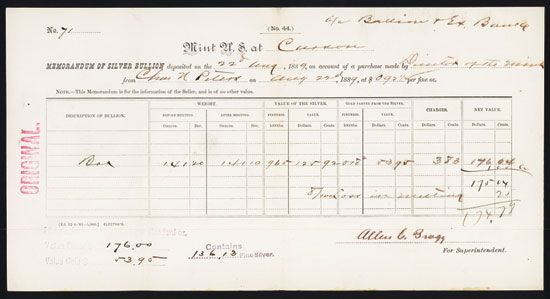 a/c Bullion & Ex. Bank
No. 71
(No. 44.)
Mint U.S. at Carson
MEMORANDUM OF SILVER BULLION deposited on the 22d Aug, 1889, on account of a purchase made by Director of the Mint
from Chas N Peters on Aug 22d 1889, at $ .92 per fine oz.
NOTE.—This Memorandum is for the information of the Seller, and is of no other value.
ORIGINAL.
DESCRIPTION OF BULLION. WEIGHT. VALUE OF THE SILVER. GOLD PARTED FROM THE SILVER. CHARGES. NET VALUE.
BEFORE MELTING. AFTER MELTING. FINENESS. VALUE. FINENESS. VALUE.
Ounces. Dec. Ounces. Dec. 1000ths. Dollars. Cents. 1000ths. Dollars. Cents. Dollars. Cents. Dollars. Cents.
Bar 141 20 141 10 965 125 92 018 53 95 3 83 176 04
175 04
174 79
in melting
Value 176.00
Value Gold $ 53.95
Contains
136.13 Fine Silver.
Allen C. Bragg
For Superintendent.